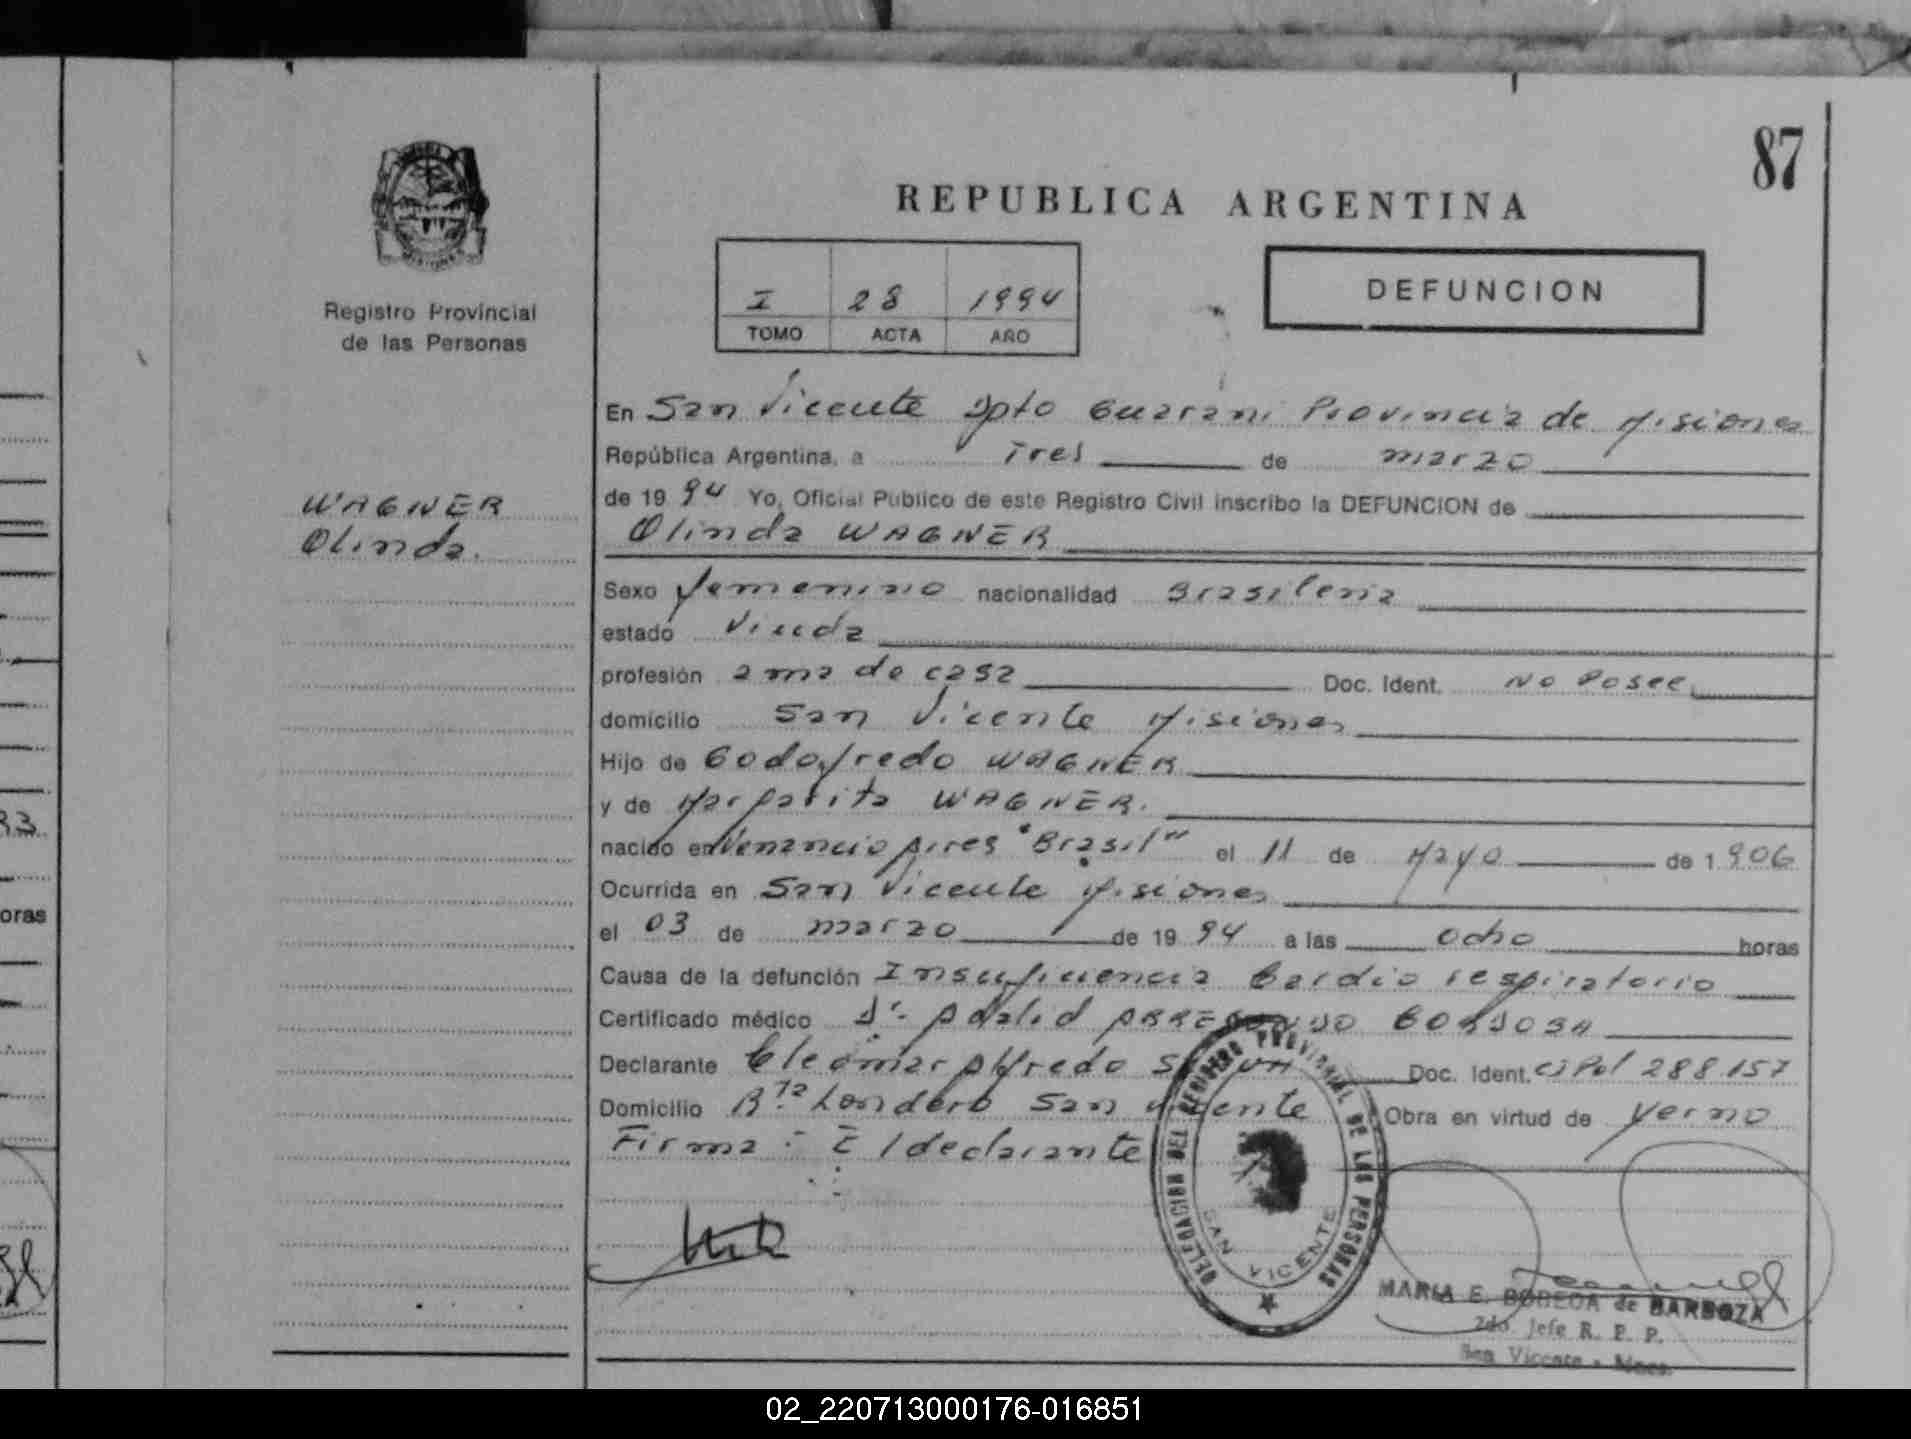 87
REPUBLICA ARGENTINA
Registro Provincial
de las Personas
I 28 1994
TOMO ACTA AÑO
DEFUNCION
En San Vicente Dpto Guarani Provincia de Misiones
República Argentina, a Tres de marzo
WAGNER
Olinda.
de 1994 Yo, Oficial Público de este Registro Civil inscribo la DEFUNCION de
Olinda WAGNER
Sexo femenino nacionalidad Brasileria
estado Viuda
profesión ama de casa Doc. Ident. No Posee
domicilio San Vicente Misiones
Hijo de Godofredo WAGNER
y de Margarita WAGNER.
nacido en Venancio Aires "Brasil" el 11 de Mayo de 1906
Ocurrida en San Vicente Misiones
el 03 de marzo de 1994 a las ocho horas
Causa de la defunción Insuficiencia Cardio respiratorio
Certificado médico Dr. ARREDONDO
Declarante Cleomar Alfredo Doc. Ident. CiPol 288.157
Domicilio Londero San Vicente Obra en virtud de Yerno
Firma: El declarante
DELEGACION DEL REGISTRO PROVINCIAL DE LAS PERSONAS
SAN VICENTE
MARIA E. de BARBOZA
2do. Jefe R. P. P.
San Vicente - Mnes.
oras
02_220713000176-016851